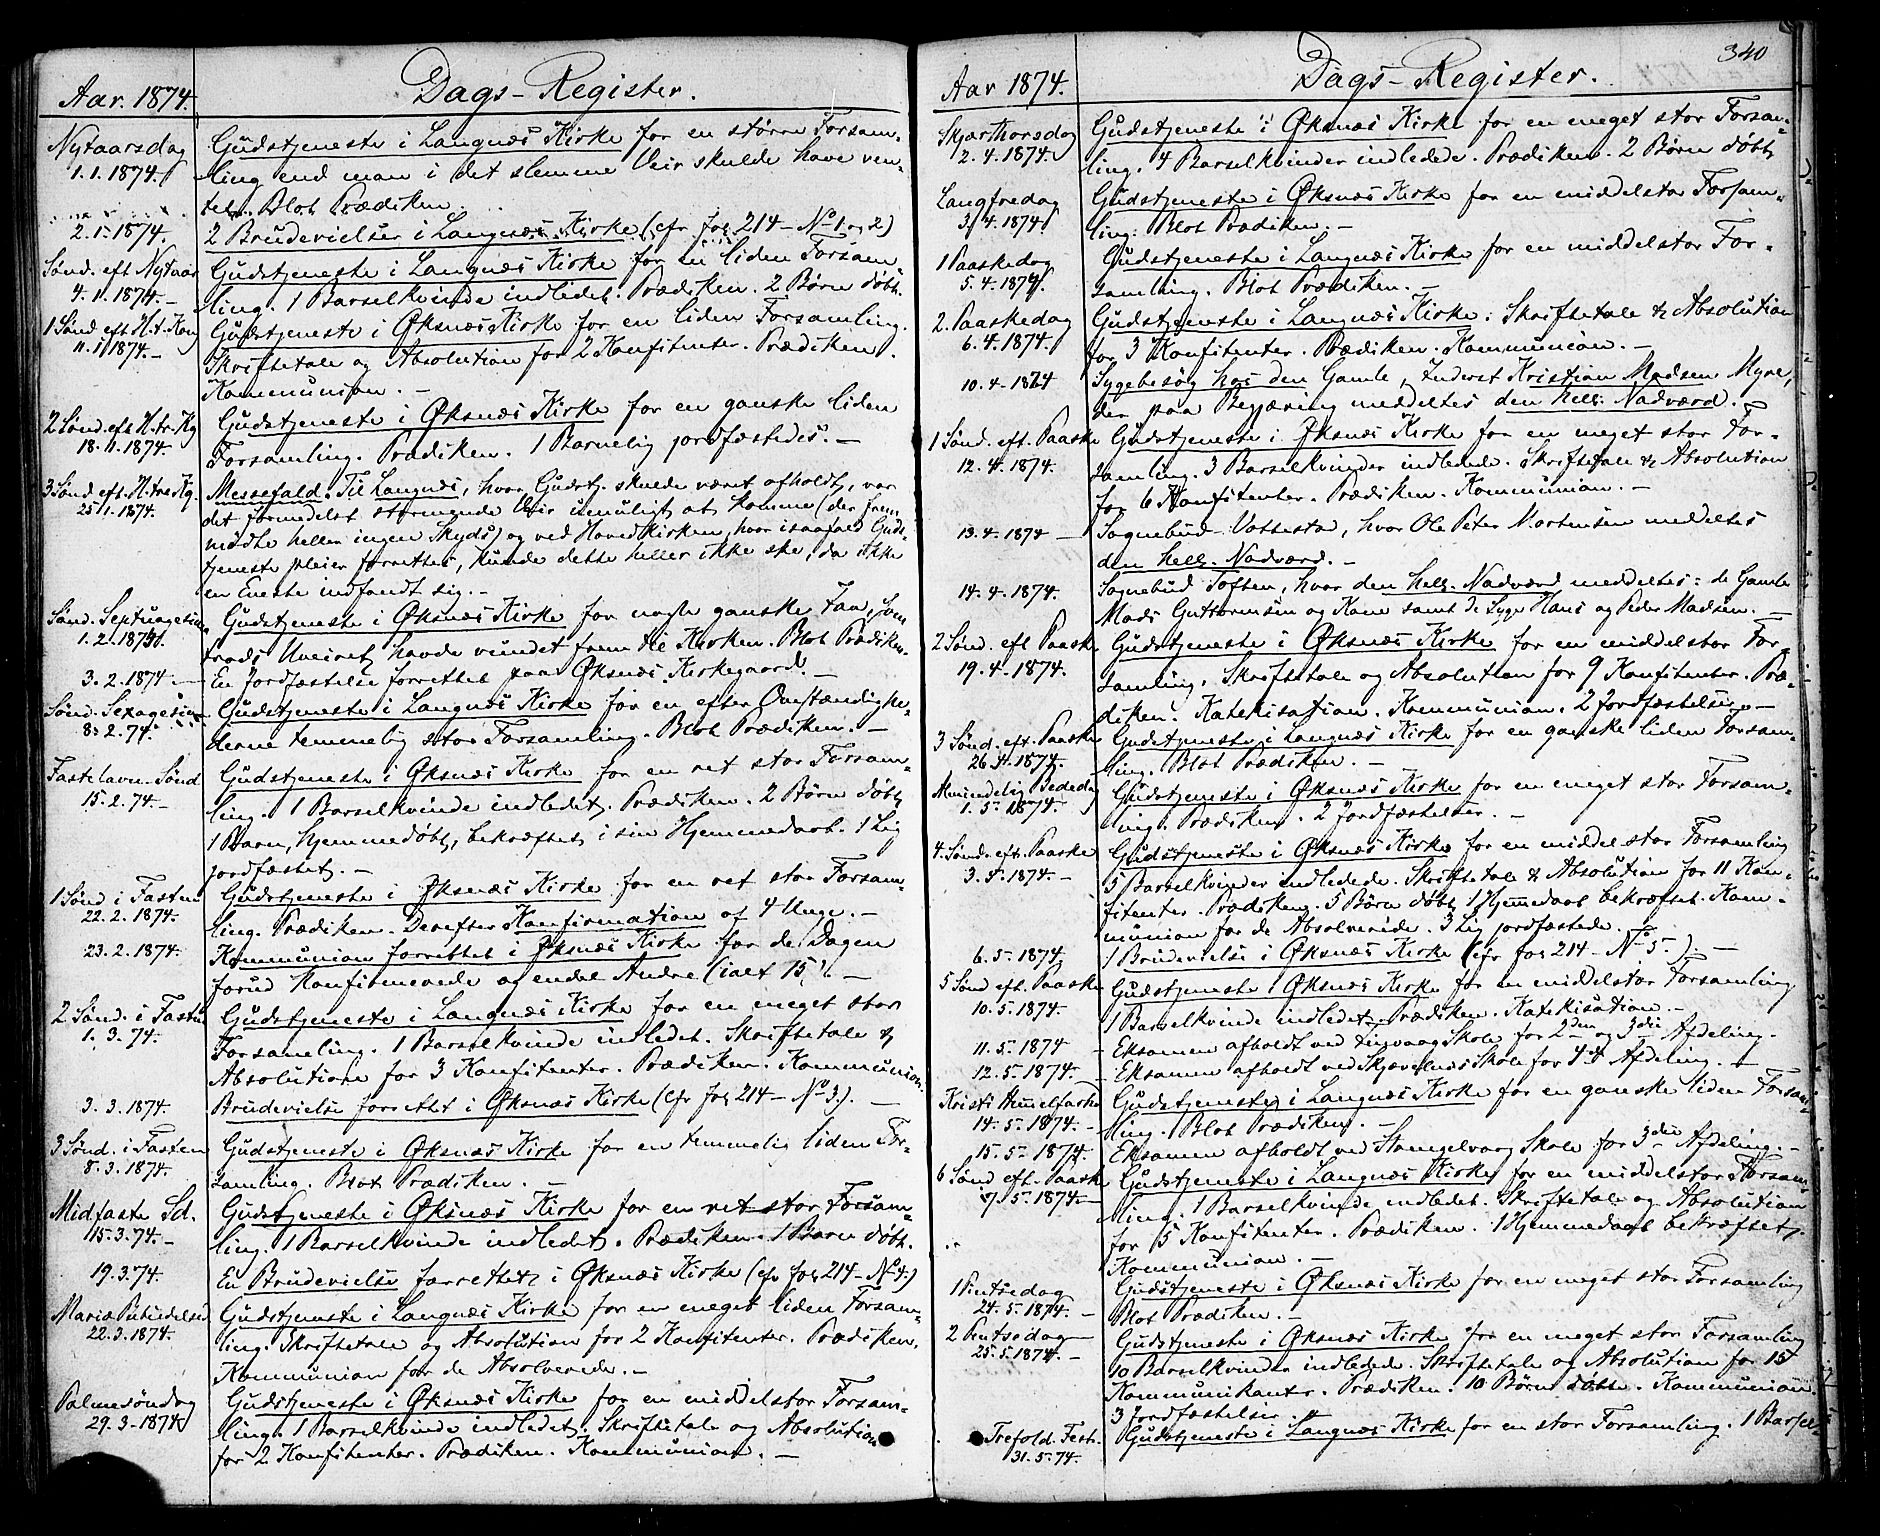 Aar. 1874.
Dags-Register.
Nytaarsdag
1.1.1874.
Gudstjeneste i Langnæs Kirke for en større Forsam-
ling end man i det slemme Veir skulde have ven-
tet. Blot Prædiken.
2.1.1874.
2 Brudevielser i Langnæs Kirke (cfr fol 214 - No 1 og 2)
Sønd. eft Nytaar
4.1.1874. -
Gudstjeneste i Langnæs Kirke for en liden Forsam
ling. 1 Barselkvinde indledet. Prædiken. 2 Børn døbt.
1 Sønd eft H. t. Kon
11.1.1874. -
Gudstjeneste i Øksnæs Kirke for en liden Forsamling.
Skriftetale og Absolution for 2 Konfitenter. Prædiken.
Kommunion. -
2 Sønd. eft H. tr. Kg
18.1.1874.
Gudstjeneste i Øksnæs Kirke for en ganske liden
Forsamling. Prædiken. 1 Barnelig jordfæstedes. -
3 Sønd eft. H. tre Kg.
25.1.1874.
Messefald. Til Langnæs, hvor Gudstj. skulde været afholdt, var
det formedelst stormende Veir umuligt at komme (der frem
mødte heller ingen Skyds) og ved Hovedkirken, hvor isaafald Guds
tjeneste pleier forrettes, kunde dette heller ikke ske, da ikke
en Eneste indfandt sig. -
Sønd. Septuagesima
1.2.1874.
Gudstjeneste i Øksnæs Kirke for nogle ganske Faa, som
trods Uveiret havde vundet frem til Kirken. Blot Prædiken.
3.2.1874 -
En Jordfæstelse forrettet paa Øksnæs Kirkegaard. -
Sønd. Sexagesima
8.2.74.
Gudstjeneste i Langnæs Kirke for en efter Omstændighe-
derne temmelig stor Forsamling. Blot Prædiken. -
Fastelavn Sønd
15.2.74 -
Gudstjeneste i Øksnæs Kirke for en ret stor Forsam-
ling. 1 Barselkvinde indledet. Prædiken. 2 Børn døbt
1 Barn, hjemmedøbt, bekræftet i sin Hjemmedaab. 1 Lig
jordfæstet. -
1 Sønd i Fasten
22.2.1874.
Gudstjeneste i Øksnæs Kirke for en ret stor Forsam-
ling. Prædiken. Derefter Konfirmation af 4 Unge. -
23.2.1874.
Kommunion forrettet i Øksnæs Kirke for de Dagen
forud Konfirmerede og endel Andre (ialt 15). -
2 Sønd. i Fasten
1.3.74.
Gudstjeneste i Langnæs Kirke for en meget stor
Forsamling. 1 Barselkvinde indledet. Skriftetale &
Absolution for 3 Konfitenter. Prædiken. Kommunion.
3.3.1874.
Brudevielse forrettet i Øksnæs Kirke (cfr fol 214 - No 3). -
3 Sønd. i Fasten
8.3.1874.
Gudstjeneste i Øksnæs Kirke for en temmelig liden For-
samling. Blot Prædiken. -
Midfaste Sd.
15.3.74. -
Gudstjeneste i Øksnæs Kirke for en ret stor Forsam-
ling. 1 Barselkvinde indledet. Prædiken. 1 Barn døbt.
19.3.74.
En Brudevielse forrettet i Øksnæs Kirke (cfr fol 214 - No 4.)
Mariæ Bebudelsesd
22.3.1874.
Gudstjeneste i Langnæs Kirke for en meget liden Forsam-
ling. Skriftetale og Absolution for 2 Konfitenter. Prædiken.
Kommunion for de Absolverede. -
Palmesøndag
29.3-1874
Gudstjeneste i Øksnæs Kirke for en middelstor Forsam-
ling. 1 Barselkvinde indledet. Skriftetale og Absolution
for 2 Konfitenter. Prædiken. Kommunion. -
340
Aar 1874.
Dags-Register.
Skjærthorsdag
2.4.1874.
Gudstjeneste i Øksnæs Kirke for en meget stor Forsam-
ling. 4 Barselkvinder indledede. Prædiken. 2 Børn døbt
Langfredag
3.4.1874
Gudstjeneste i Øksnæs Kirke for en middelstor Forsam-
ling: Blot Prædiken. -
1 Paaskedag
5.4.1874.
Gudstjeneste i Langnæs Kirke for en middelstor For-
samling. Blot Prædiken. -
2. Paaskedag
6.4.1874.
Gudstjeneste i Langnæs Kirke. Skriftetale & Absolution
for 3 Konfitenter. Prædiken. Kommunion. -
10.4-1874
Sygebesøg hos den Gamle, Inderst Kristian Madsen Myre,
der paa Begjæring meddeltes den hell. Nadværd. -
1 Sønd. eft. Paaske
12.4.1874.
Gudstjeneste i Øksnæs Kirke for en meget stor For-
samling. 3 Barselkvinder indledede. Skriftetale & Absolution
for 6 Konfitenter. Prædiken. Kommunion. -
13.4.1874 -
Sognebud Vottestad, hvor Ole Peter Mortensen meddeltes
den hell. Nadværd. -
14.4.1874.
Sognebud Toften, hvor den hell. Nadværd meddeltes: de Gamle
Mads Guttormsen og Kone samt de Syge Hans og Peder Madsen. -
2 Sønd. eft Paaske
19.4.1874.
Gudstjeneste i Øksnæs Kirke for en middelstor For-
samling. Skriftetale og Absolution for 9 Konfitenter. Præ-
diken. Katekisation. Kommunion. 2 Jordfæstelser. -
3 Sønd. eft. Paaske
26.4.1874.
Gudstjeneste i Langnæs Kirke for en ganske liden Forsam-
ling. Blot Prædiken. -
Almindelig Bededag
1.5.1874.
Gudstjeneste i Øksnæs Kirke for en meget stor Forsam-
ling. Prædiken. 2 Jordfæstelser. -
4. Sønd. eft. Paaske
3.5.1874. -
Gudstjeneste i Øksnæs Kirke for en middelstor Forsamling
3 Barselkvinder indledede. Skriftetale & Absolution for 11 Kon-
fitenter. Prædiken. 5 Børn døbt 1 Hjemmedaab bekræftet. Kom-
munion for de Absolverede. 3 Lig jordfæstede.
6.5.1874.
1 Brudevielse i Øksnæs Kirke (cfr fol 214 - No 5). -
5 Sønd eft. Paaske
10.5.1874.
Gudstjeneste i Øksnæs Kirke for en middelstor Forsamling
1 Barselkvinde indledet. Prædiken. Katekisation. -
11.5.1874 -
Eksamen afholdt ved Tinvaag Skole for 2den og 3die Afdeling.
12.5.1874. -
Eksamen afholdt ved Skjævelnes Skole for 4de Afdeling. -
Kristi Himmelfartsd
14.5.1874. -
Gudstjeneste i Langnæs Kirke for en ganske liden Forsam-
ling. Blot Prædiken. -
15.5.1874.
Eksamen afholdt ved Stengelvaag Skole for 3die Afdeling. -
6 Sønd eft. Paaske
17.5.1874 -
Gudstjeneste i Langnæs Kirke for en middelstor Forsam-
ling. 1 Barselkvinde indledet. Skriftetale og Absolution
for 5 Konfitenter. Prædiken. 1 Hjemmedaab bekræftet.
Kommunion. -
1 Pintsedag
24.5.1874. -
Gudstjeneste i Øksnæs Kirke for en meget stor Forsamling
Blot Prædiken. -
2 Pintsedag
25.5.1874. -
Gudstjeneste i Øksnæs Kirke for en meget stor Forsamling
10 Barselkvinder indledede. Skriftetale og Absolution for 15
Kommunikanter. Prædiken. 10 Børn døbte. Kommunion
3 Jordfæstelser. -
Trefold. Fest.
31.5.74.
Gudstjeneste i Langnæs Kirke for en stor Forsamling. 1 Barsel-